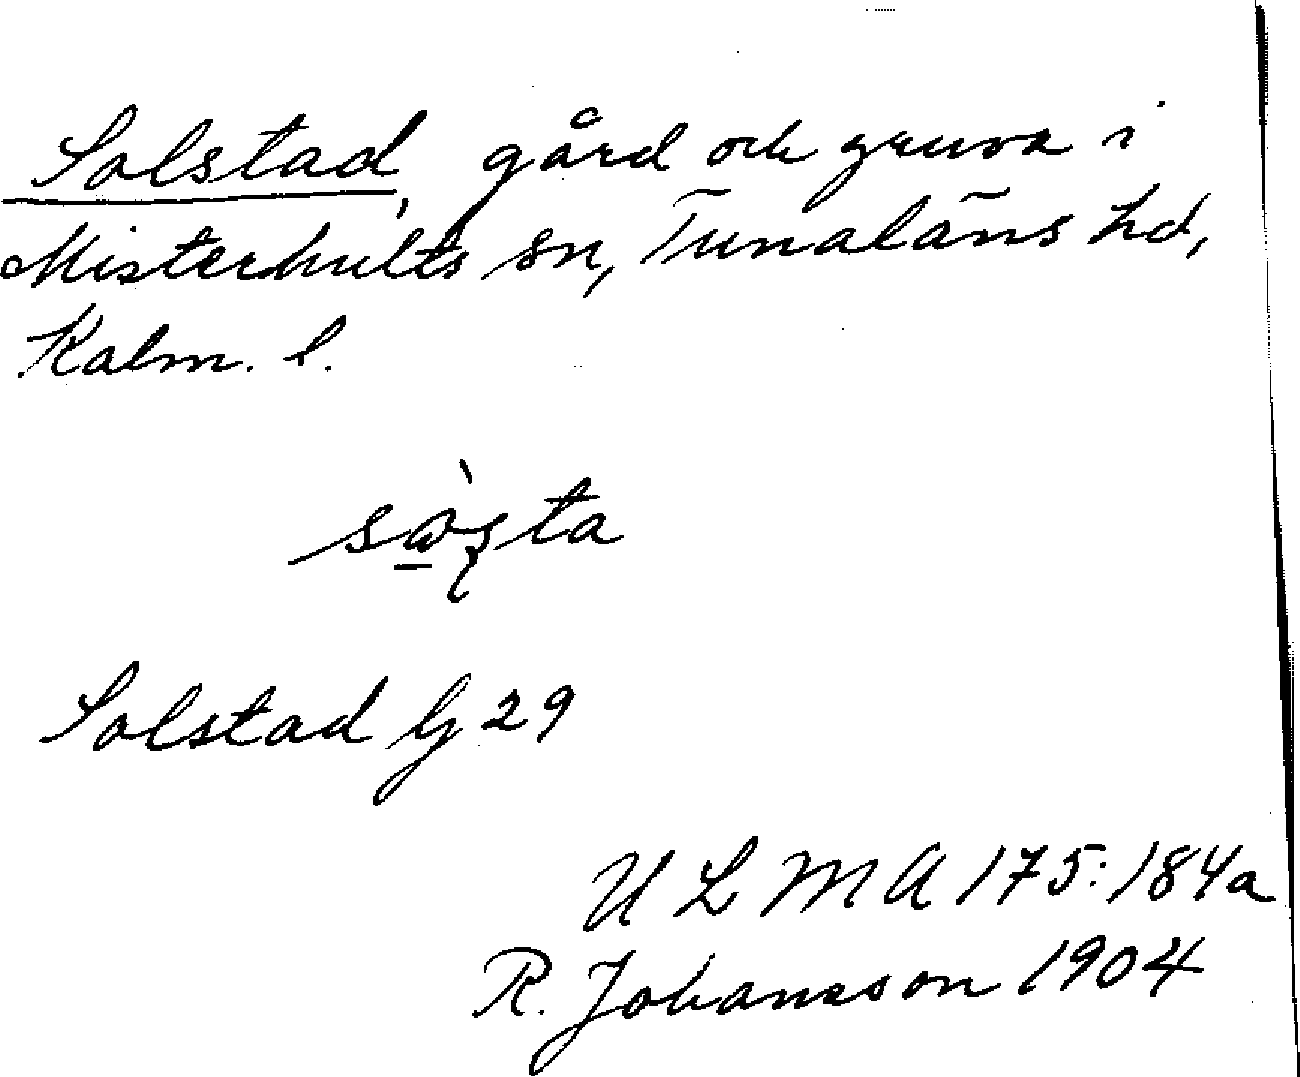 Solstad, gård och gruva i
Misterhults sn, Tunaläns hd,
Kalm. l.
Solstad G 29
ULMA 175:184a
R. Johansson 1904